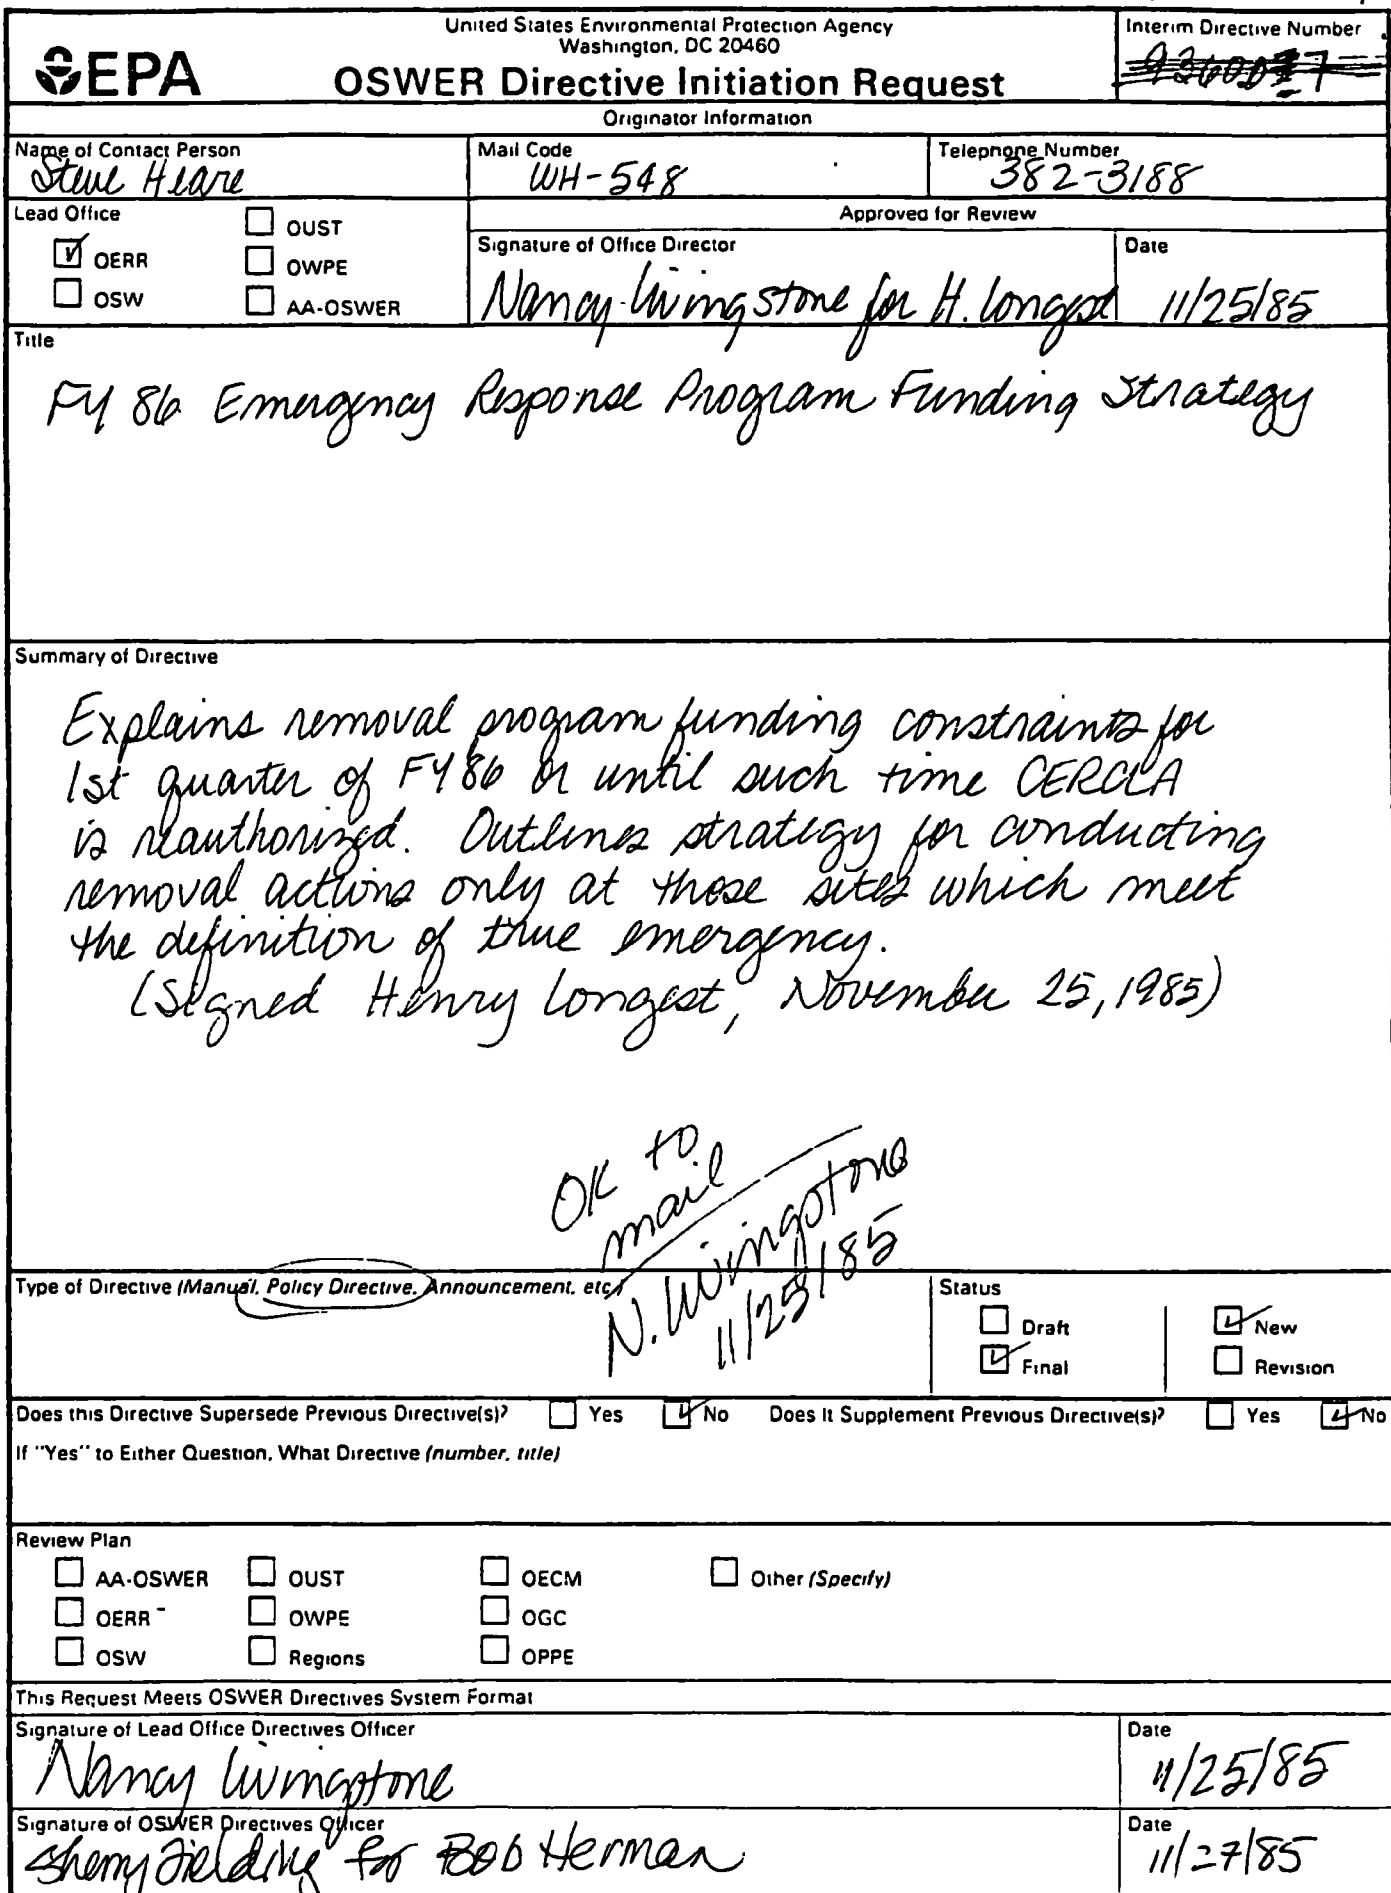 United States Environmental Protection Agency
Washington, DC 20460
EPA
OSWER Directive Initiation Request
Interim Directive Number
Originator Information
Name of Contact Person
Steve Heare
Mail Code
WH-548
Telephone Number
382-3188
Lead Office
OERR
OSW
OUST
OWPE
AA-OSWER
Approved for Review
Signature of Office Director
Nancy Livingstone for H. Longest
Date
11/25/85
Title
FY 86 Emergency Response Program Funding Strategy
Summary of Directive
Explains removal program funding constraints for
1st quarter of FY86 or until such time CERCLA
is reauthorized. Outlines strategy for conducting
removal actions only at those sites which meet
the definition of true emergency.
(Signed Henry Longest, November 25, 1985)
OK to
mail
N. Livingstone
11/25/85
Type of Directive (Manual, Policy Directive, Announcement, etc.)
Status
Draft
Final
New
Revision
Does this Directive Supersede Previous Directive(s)? Yes No Does It Supplement Previous Directive(s)? Yes No
If "Yes" to Either Question, What Directive (number, title)
Review Plan
AA-OSWER OUST OECM Other (Specify)
OERR OWPE OGC
OSW Regions OPPE
This Request Meets OSWER Directives System Format
Signature of Lead Office Directives Officer
Nancy Livingstone
Date
11/25/85
Signature of OSWER Directives Officer
Sherry Fielding for Bob Herman
Date
11/27/85